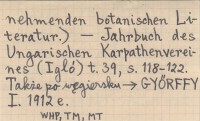 nehmenden botanischen Li-
teratur.) — Jahrbuch des
Ungarischen Karpathenverei-
nes (Igló) t. 39, s. 118-122.
Także po węgiersku → GYÖRFFY
I. 1912 e.
WHP, TM, MT